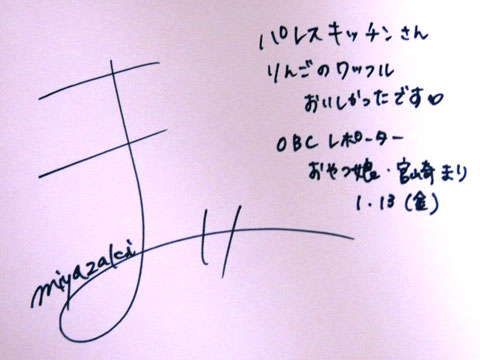 パレスキッチンさん
りんごのワッフル
おいしかったです♡
OBC レポーター
おやつ娘・宮崎まり
1.13(金)
まり
miyazaki